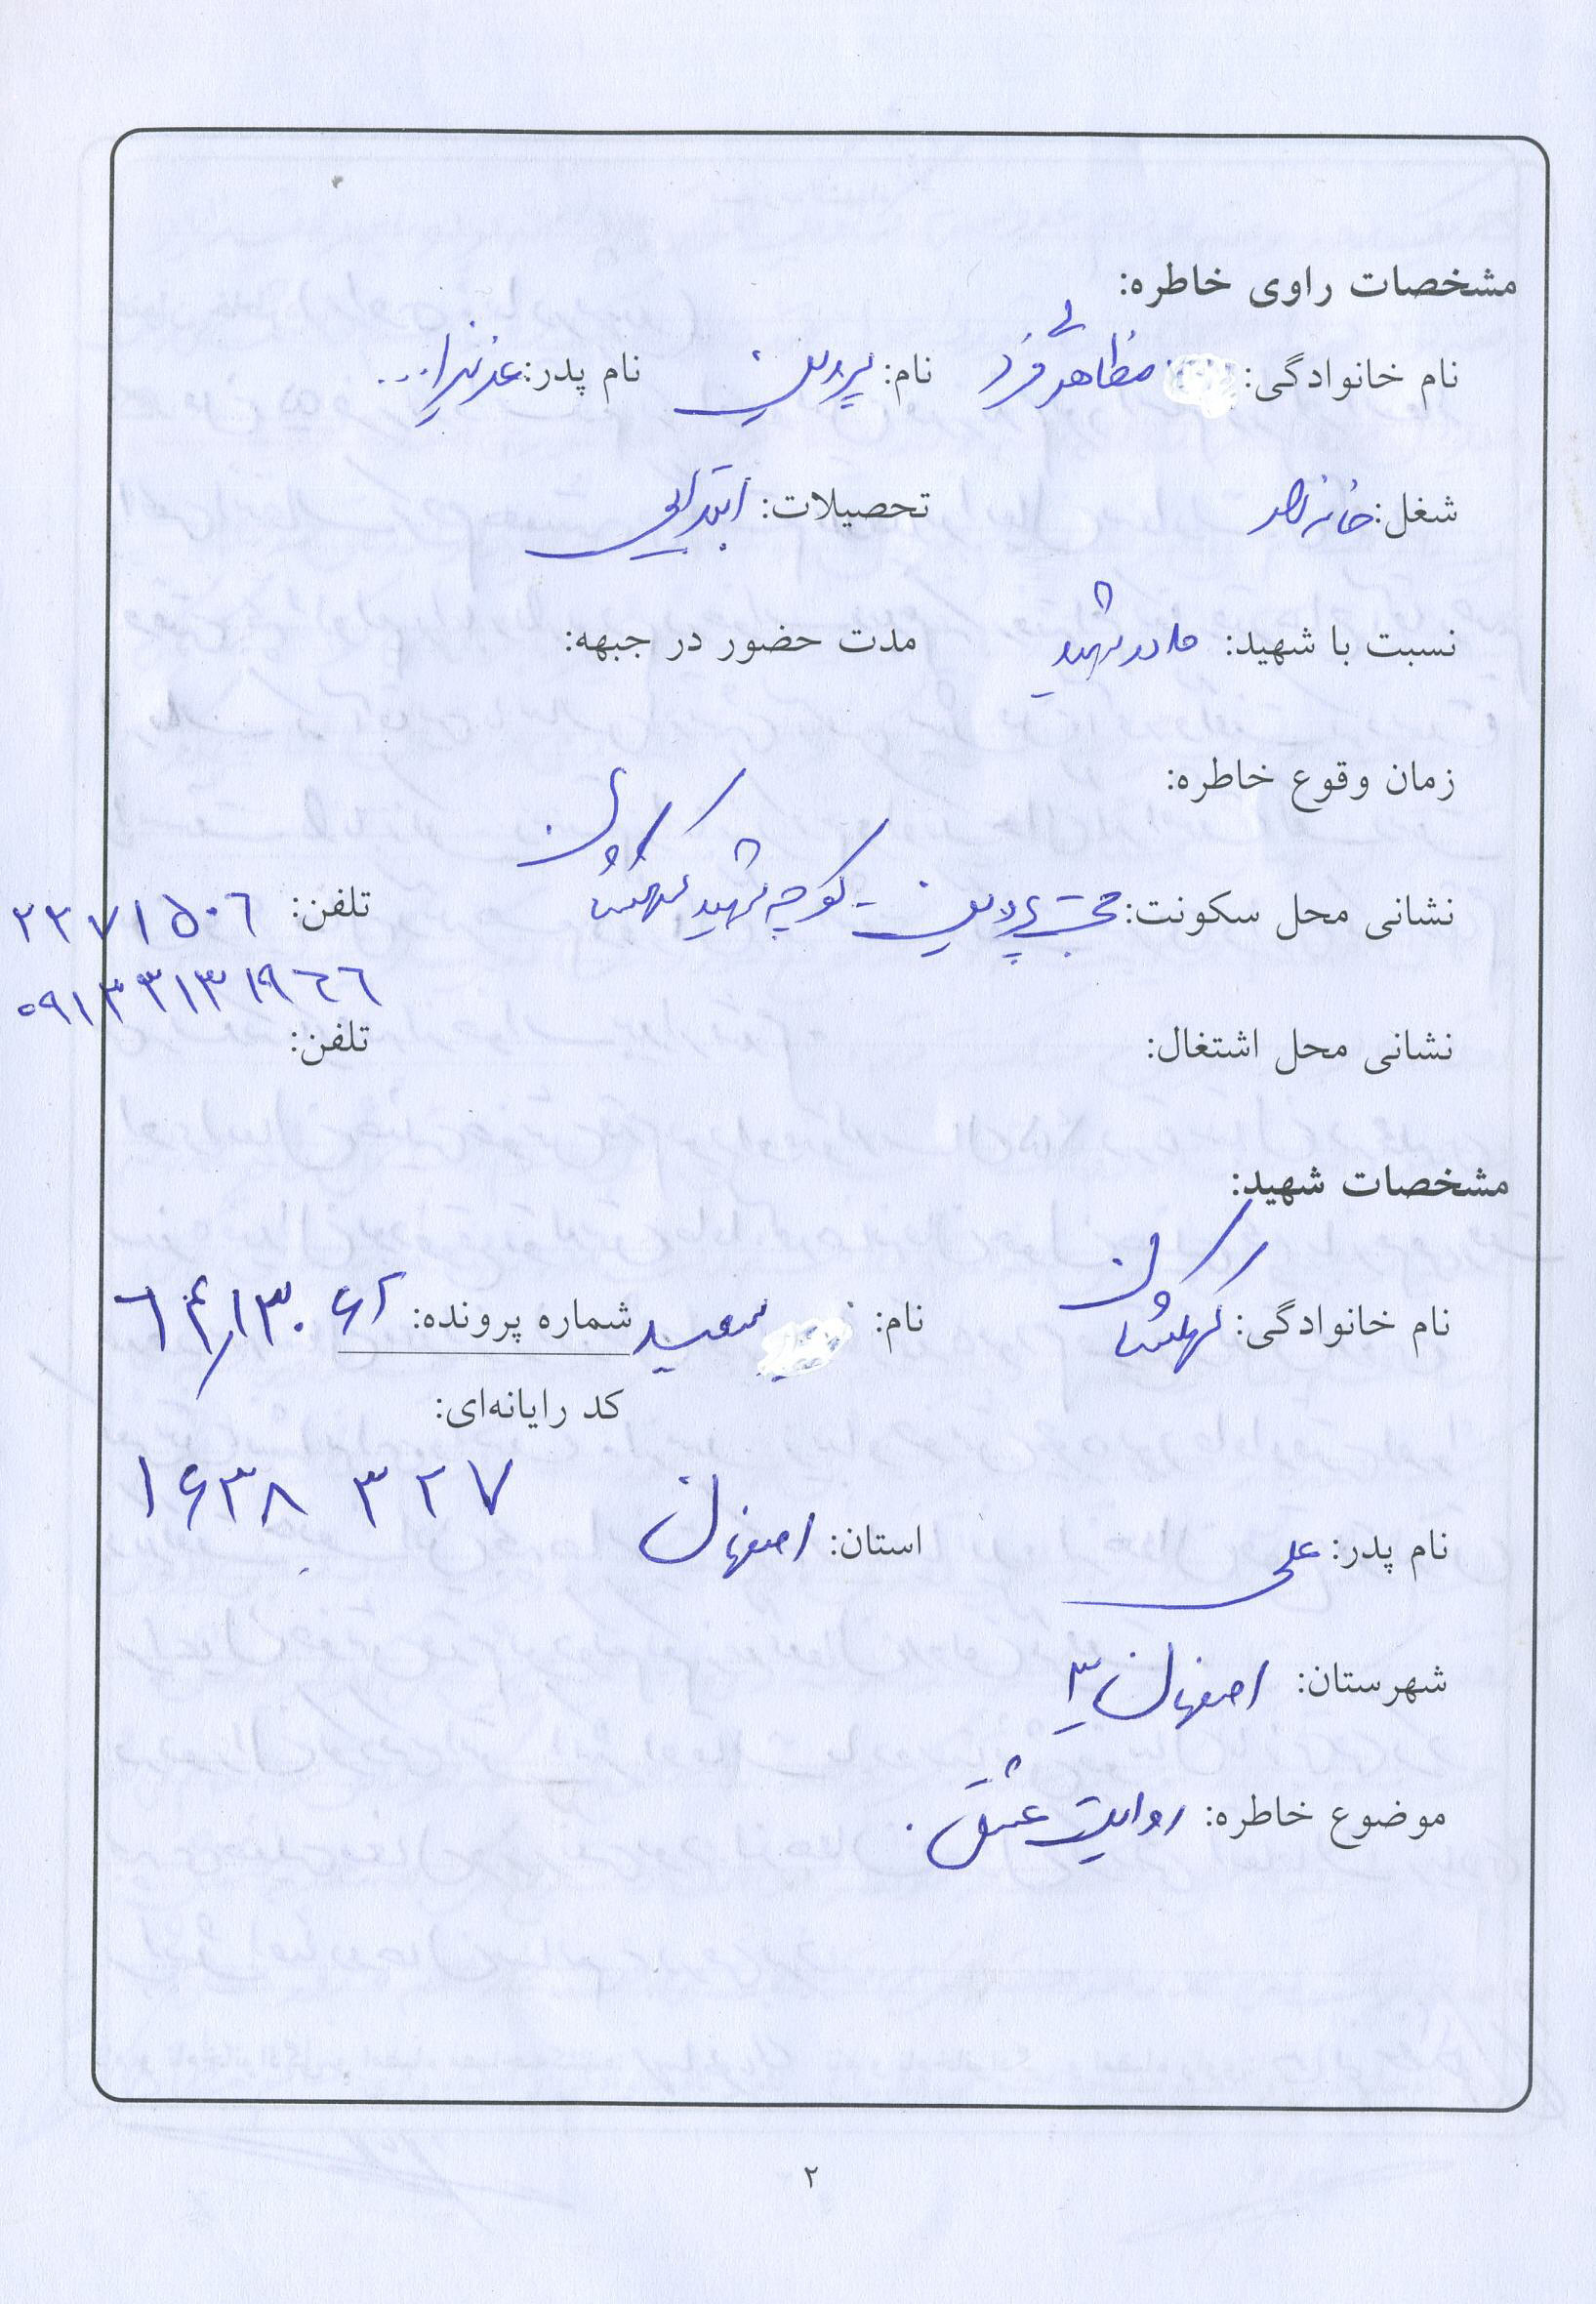 مشخصات راوی خاطره:
نام خانوادگی: مظاهری فرد نام: پروین نام پدر: عزیزا...
شغل: خانه دار تحصیلات: ابتدایی
نسبت با شهید: مادر شهید مدت حضور در جبهه:
زمان وقوع خاطره:
نشانی محل سکونت: پروین - کوچه شهید تلفن: ۲۲۷۱۵۰۶
۰۹۱۳۳۱۳۱۹۶۶
نشانی محل اشتغال: تلفن:
مشخصات شهید:
نام خانوادگی: نام: سعید شماره پرونده:
کد رایانه‌ای:
۱۶۳۸۳۲۷
نام پدر: علی استان: اصفهان
شهرستان: اصفهان ۳
موضوع خاطره: روایت عشق.
۲